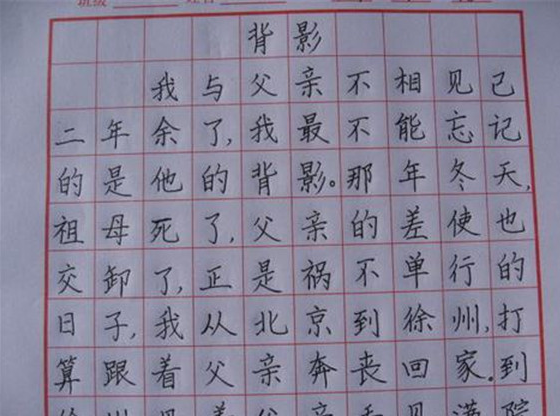 背影
我与父亲不相见已
二年余了,我最不能忘记
的是他的背影。那年冬天,
祖母死了,父亲的差使也
交卸了,正是祸不单行的
日子,我从北京到徐州,打
算跟着父亲奔丧回家。到